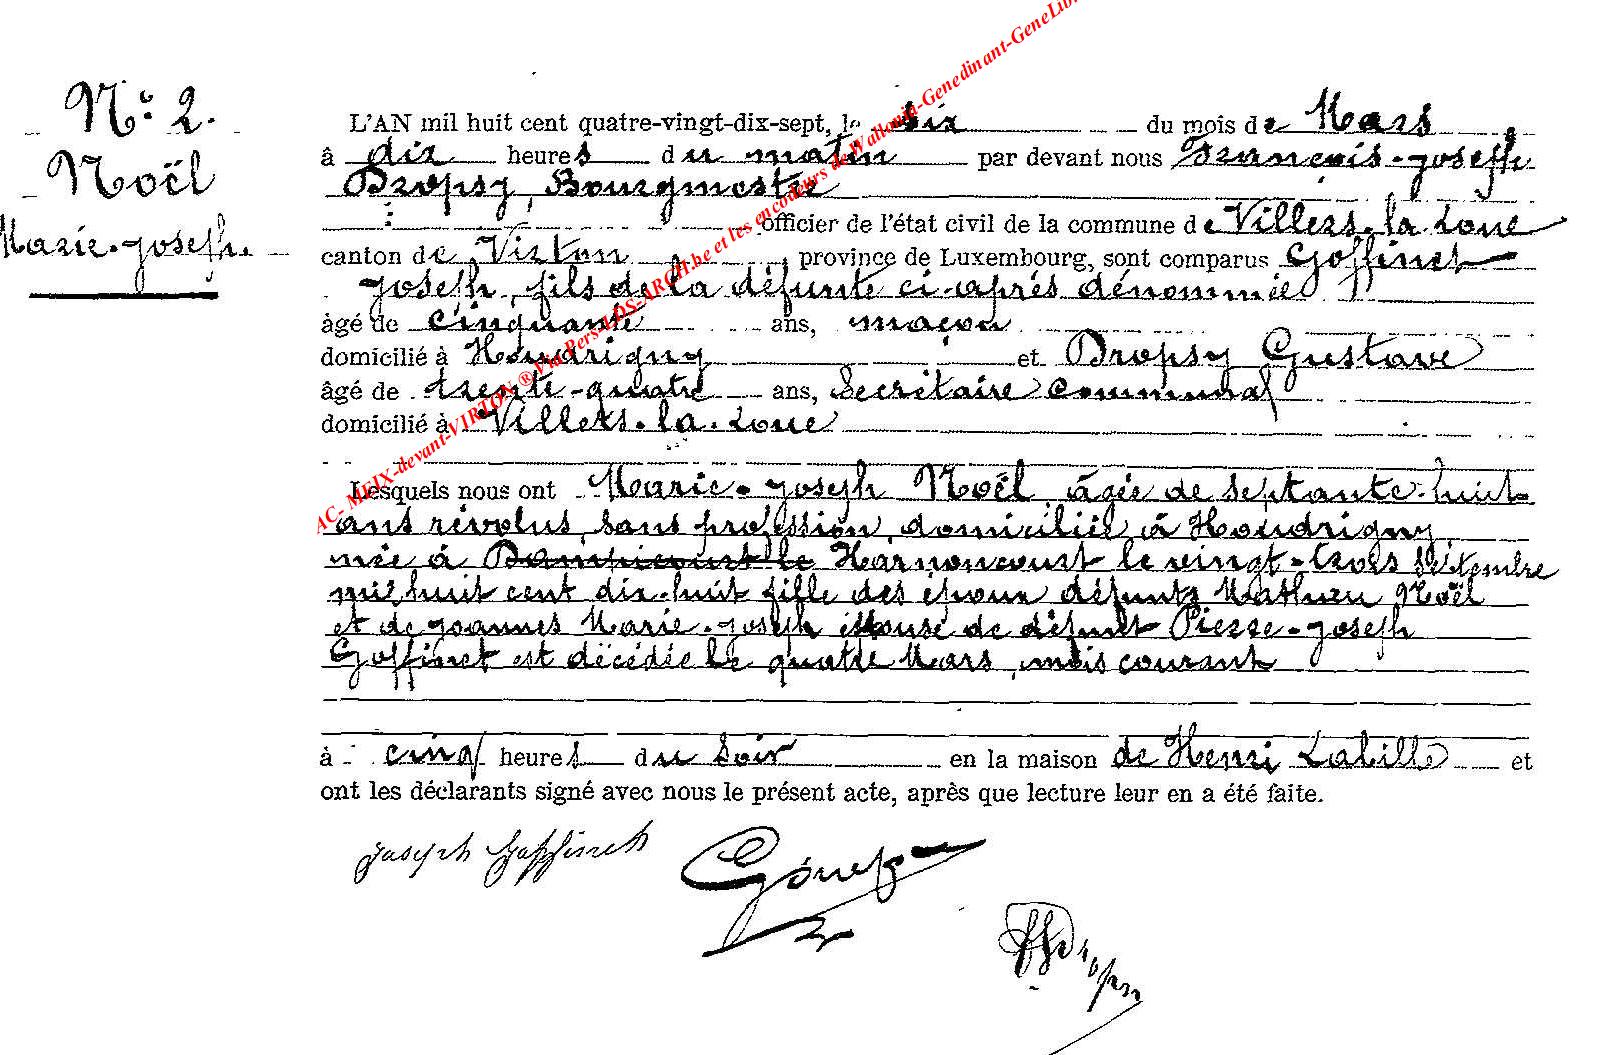 N° 2.
Noël
Marie-Joseph.
L'AN mil huit cent quatre-vingt-dix-sept, le six du mois de Mars
à dix heures du matin par devant nous François-Joseph
Dropsy, Bourgmestre
officier de l'état civil de la commune de Villers-la-Loue
canton de Virton province de Luxembourg, sont comparus Goffinet
Joseph, fils de la défunte ci-après dénommée
âgé de cinquante ans, maçon
domicilié à Houdrigny et Dropsy Gustave
âgé de trente-quatre ans, Secrétaire communal
domicilié à Villers-la-Loue
Lesquels nous ont Marie-Joseph Noël, âgée de septante-huit
ans révolus, sans profession, domiciliée à Houdrigny
née à Dampicourt le Harnoncourt le vingt-trois Septembre
mil huit cent dix-huit fille des époux défunts Mathieu Noël
et de Joannes Marie-Joseph épouse de défunt Pierre-Joseph
Goffinet est décédée le quatre Mars, mois courant
à cinq heures du soir en la maison de Henri Labille et
ont les déclarants signé avec nous le présent acte, après que lecture leur en a été faite.
Joseph Goffinet
AC- MEIX-devant-VIRTON ® Via Pers-LDS-ARCH.be et les encodeurs de Wallonia-Genedinant-GeneLib